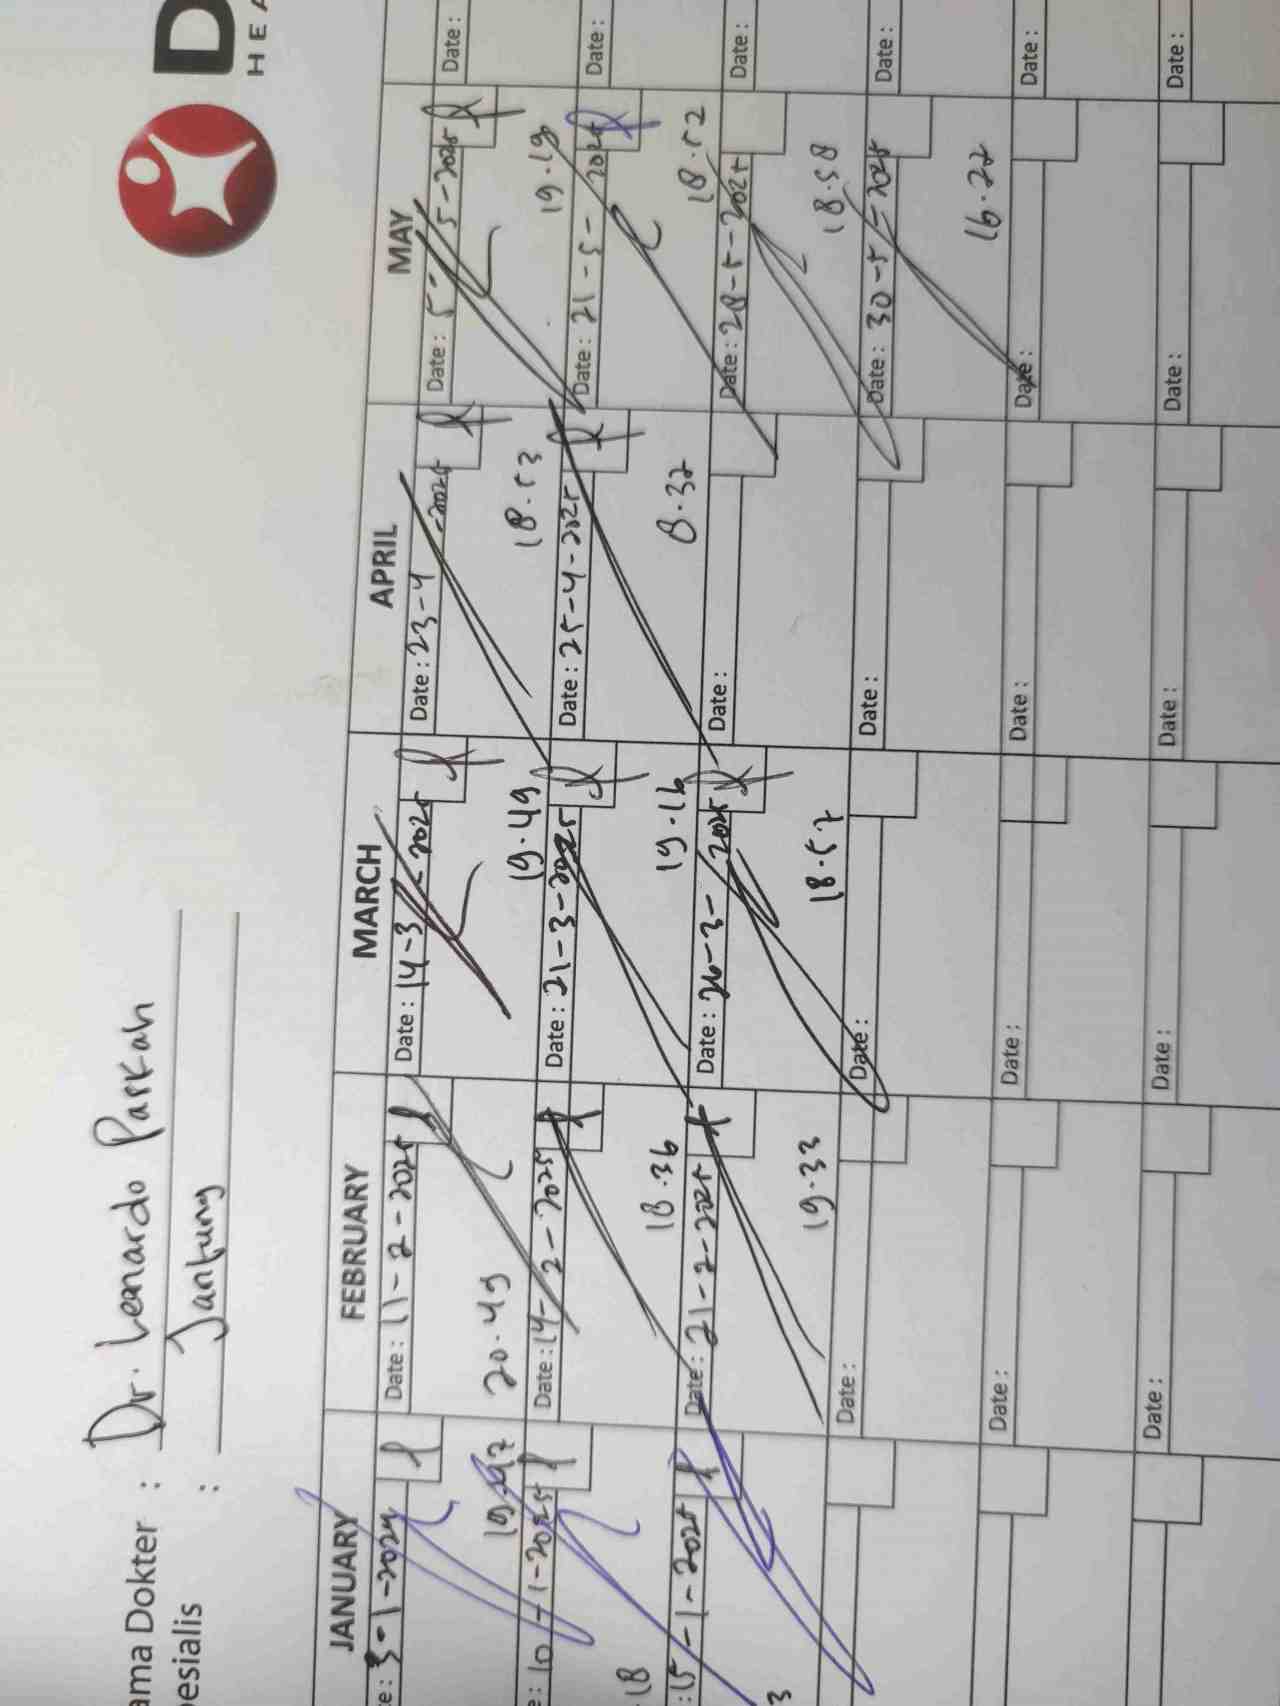 D
HEA
ama Dokter : Dr. Leonardo Paskah
pesialis : Jantung
JANUARY FEBRUARY MARCH APRIL MAY
e: 3-1-2024 Date: 11-2-2025 Date: 14-3-2025 Date: 23-4-2025 Date: 5-5-2025 Date:
19.47 20.49 19.49 18.53 19.19
e: 10-1-2025 Date: 14-2-2025 Date: 21-3-2025 Date: 25-4-2025 Date: 21-5-2025 Date:
.18 18.36 19.16 8.32 18.52
: 15-1-2025 Date: 21-2-2025 Date: 26-3-2025 Date: Date: 28-5-2025 Date:
3 19.33 18.57 18.58
Date: Date: Date: Date: 30-5-2025 Date:
16.22
Date: Date: Date: Date: Date:
Date: Date: Date: Date: Date: